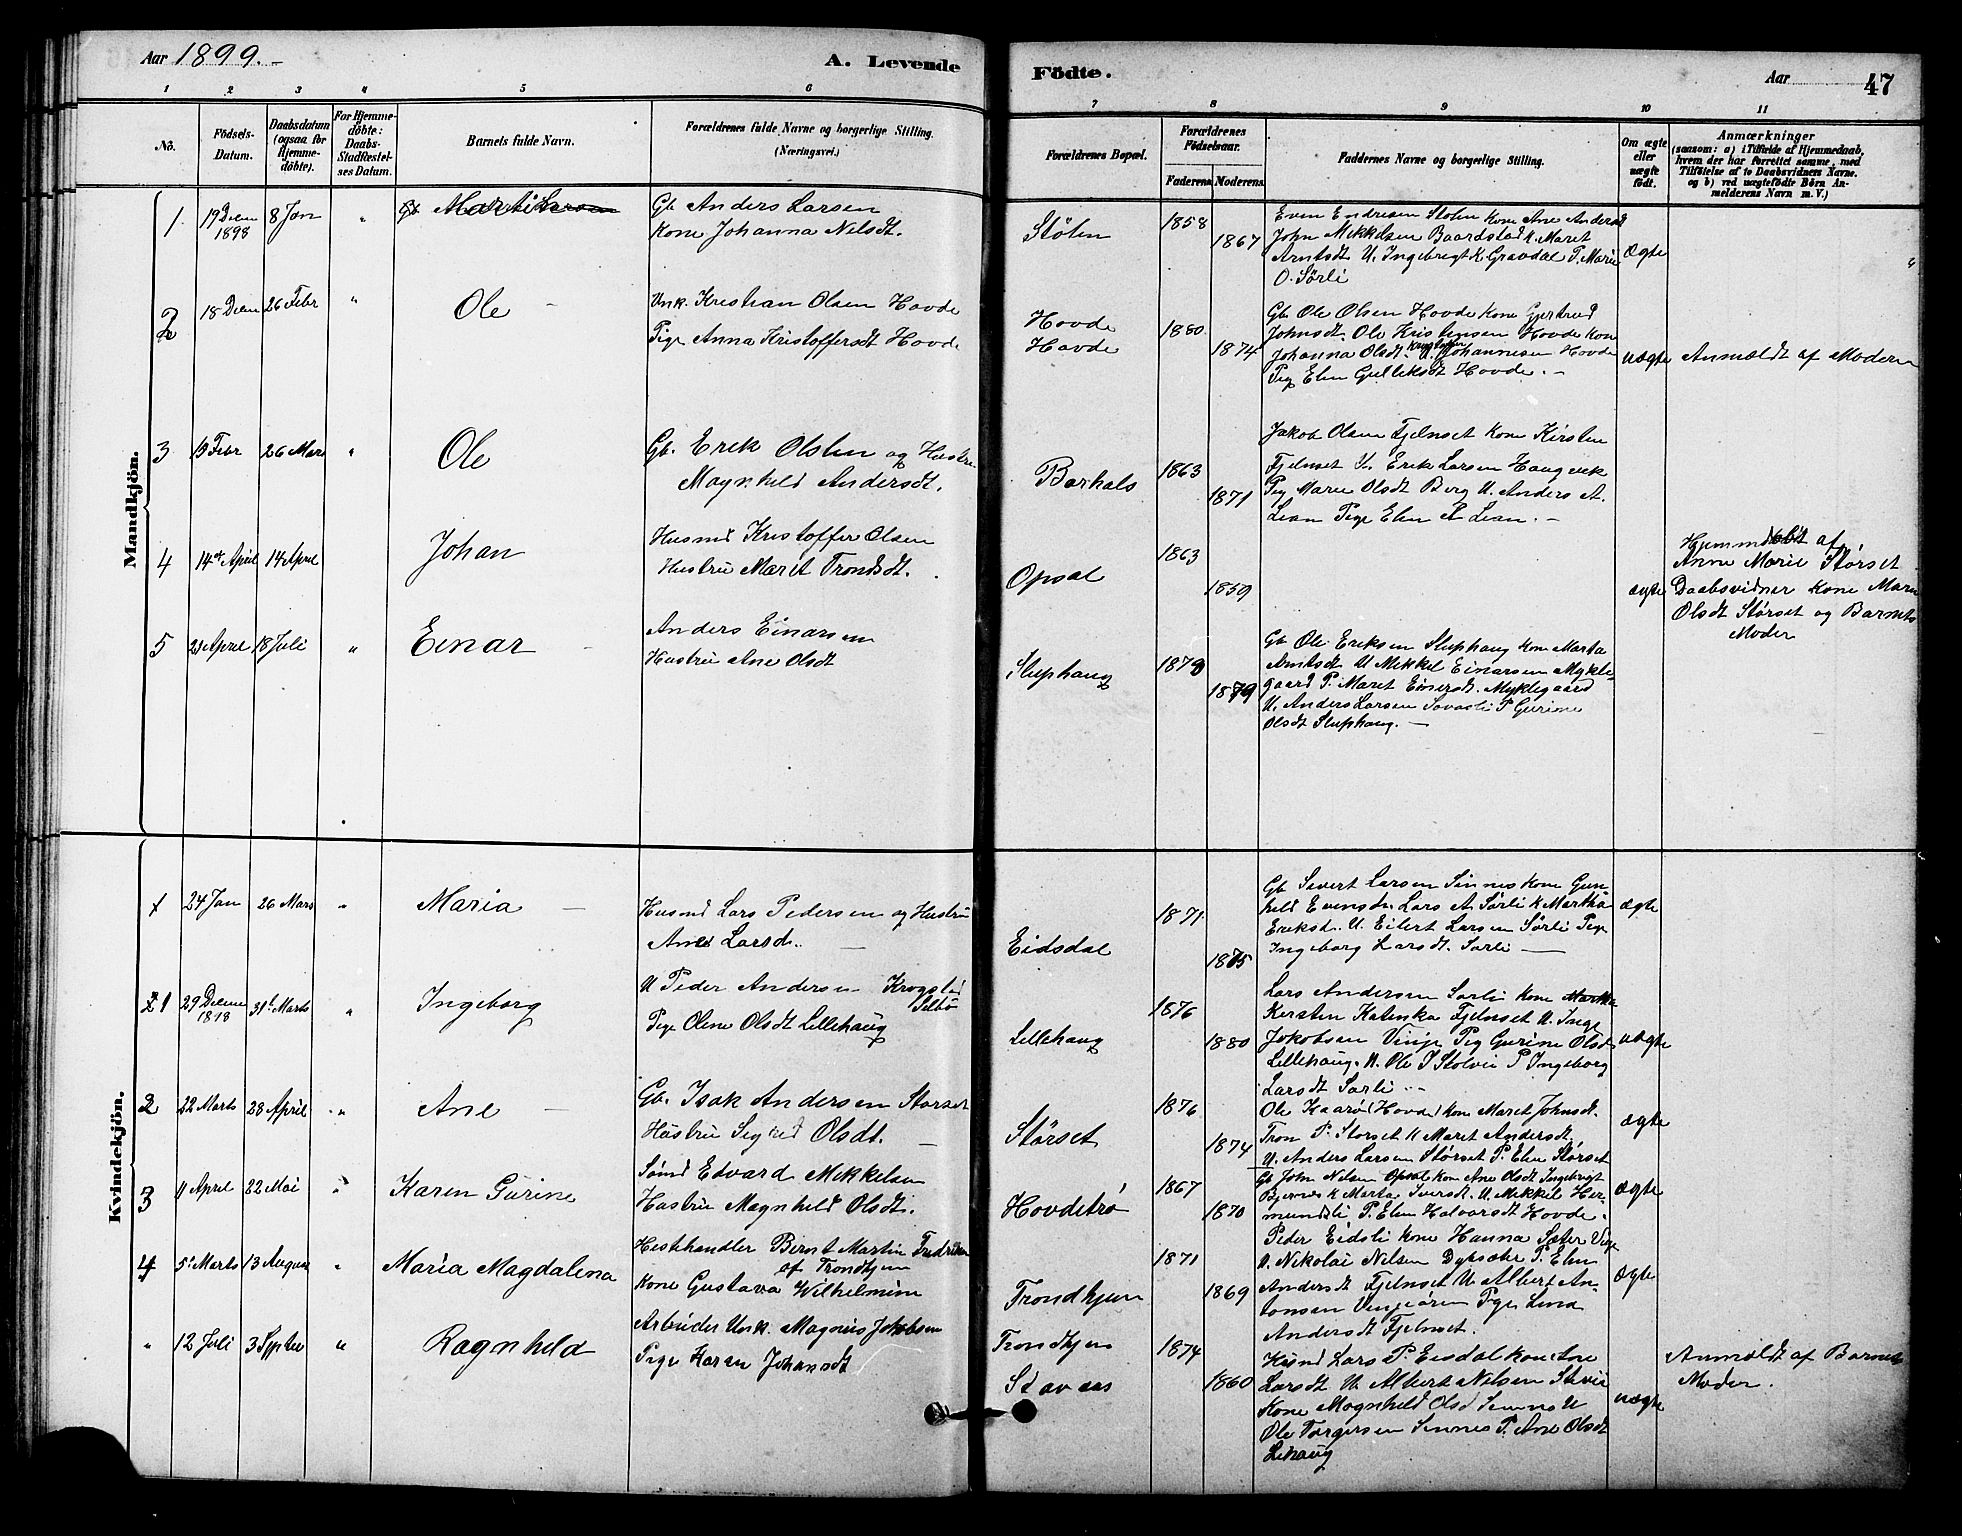 Aar 1899.-
A. Levende
Födte.
Aar
47
1 2 3 4 5 6 7 8 9 10 11
No.
Födsels-Datum.
Daabsdatum (ogsaa for Hjemmedöbte).
For Hjemmedöbte: Daabs-Stadfæstelses Datum.
Barnets fulde Navn.
Forældrenes fulde Navne og borgerlige Stilling.
(Næringsvei.)
Forældrenes Bopæl.
Forældrenes Födselsaar.
Faderens. Moderens.
Faddernes Navne og borgerlige Stilling.
Om ægte eller uægte födt.
Anmærkninger
(saasom: a) i Tilfælde af Hjemmedaab, hvem der har forrettet samme, med Tilföielse af to Daabsvidners Navne. og b) ved uægtefödte Börn Anmelderens Navn m. V.)
Mandkjön.
1. 19 Decm 1898 8 Jan "
Gb Anders Larsen
Kone Johanna Nilsdt.
Stølen 1858 1867
Even Endresen Stolen Kone Ane Andersd
John Mikkelsen Baardstad K. Maret
Arntsdt U. Ingebrigt K Gravdal P. Marie
O. Sörli
Ægte
2 18 Decm 26 Febr "
Ole -
Unk. Kristian Olsen Hovde
Pige Anna Kristoffersdt Hovde
Hovde
Hovde
1880 1874
Gb. Ole Olsen Hovde Kone Gjertrud
Johnsdt. Ole Kristensen Hovde Kone
Johanna Olsdt. U. Kristoffer Johannesen Hovde
Pig Elen Gulleksdt Hovde. -
uægte
Anmældt af Modern
3 19 Febr 26 Mars "
Ole
Gb. Erik Olsen og Hustru
Magnhild Andersdt.
Barhals 1863 1871
Jakob Olsen Fjelnset Kone Kirsten
Fjelnset U. Erik Larsen Haugvek
Pig Marie Olsdt Berg U. Anders A.
Lian Pige Elen A Lian. -
4 14de April 14 April
Johan
Husmd Kristoffer Olsen
Hustru Marit Trondsdt.
Opsal 1863 1859
ægte
Hjemmedøbt af
Anne Marie Størset
Daabsvidner Kone Marie
Olsdt Størset og Barnets
Moder
5 21 April 18 Juli "
Einar -
Anders Einarsen
Hustru Ane Olsdt
Sluphaug 1879 1879
Gb Ole Eriksen Sluphaug Kone Marta
Arntsdt U Mikkel Einarsen Mykle
gaard P. Maret Einersdt. Myklegaard
U. Anders Larsen Sovasli P Gurine
Olsdt Sluphaug. -
Kvindekjön.
1 24 Jan 26 Mars "
Maria -
Husmd Lars Pedersen og Hustru
Ane Larsd.. -
Eidsdal 1871 1875
Gb Sivert Larsen Sinnes Kone Gun
hild Evensdr. Lars A Sørli K Martha
Eriksd. U. Eilert Larsen Sörli Pige
Ingeborg Larsdt. Sorli -
ægte
21 29 Decem 1898 31t Marts "
Ingeborg
U Peder Andersen Krogstad
Selbo
Pige Oline Olsdt Lillehaug
Lillehaug 1876 1880
Lars Andersen Sorli Kone Martha
Kirsten Katinka Fjelnset U. Inge
Jakobsen Vinje Pig Gurine Olsd
Lillehaug. U. Ole J Stolvei P Ingeborg
Larsdt Sorli -
uægte
2 22 Marts 28 April "
Ane -
Gb. Isak Andersen Storset
Hustru Sigrid Olsdt. -
Størset 1876 1874
Ole Kaarø (Hovde) Kone Maret Johnsdt.
Tron P. Storset K Maret Andersdt
U. Anders Larsen Størset P. Elen Størset
ægte
3 11 April 22 Mai "
Karen Gurine
Sømd Edvard Mikkelsen
Hustru Magnhild Olsdt.
Hovdetrø 1867 1870
Gb John Nilsen Opsal Kone Ane Olsdt Ingebrigt
Bjernes K Marta Iversdt. U. Mikkel Her-
mundsli P. Elen Halvarsdt Hovde.
ægte
4 5 Marts 13 August "
Maria Magdalena
Hestehandler Bernt Martin Fredriksen
af Trondhjem
Kone Gustava Wilhelmine
Trondhjem 1871 1869
Peder Eidsli Kone Hanna Sæter Vinje
U. Nikolai Nilsen Dyrsæter P. Elen
Andersdt Fjelnset U. Albert An-
tonsen Vingeören Pige Lina
Andersdt Fjelnset.
ægte
" 12 Juli 3 Septer "
Ragnhild
Arbeider Unk. Magnus Jakobsen
Pige Karen Johansdt
Trondhjem
Stavaas
1874 1860
Husmd Lars P. Eisdal Kone Ane
Larsdt U. Albert Nilsen
Kone Magnhild Olsd Sinnes U
Ole Torgersen Sinnes P. Ane Olsdt
Lihaug
uægte
Anmeldt af Barnets
Moder.